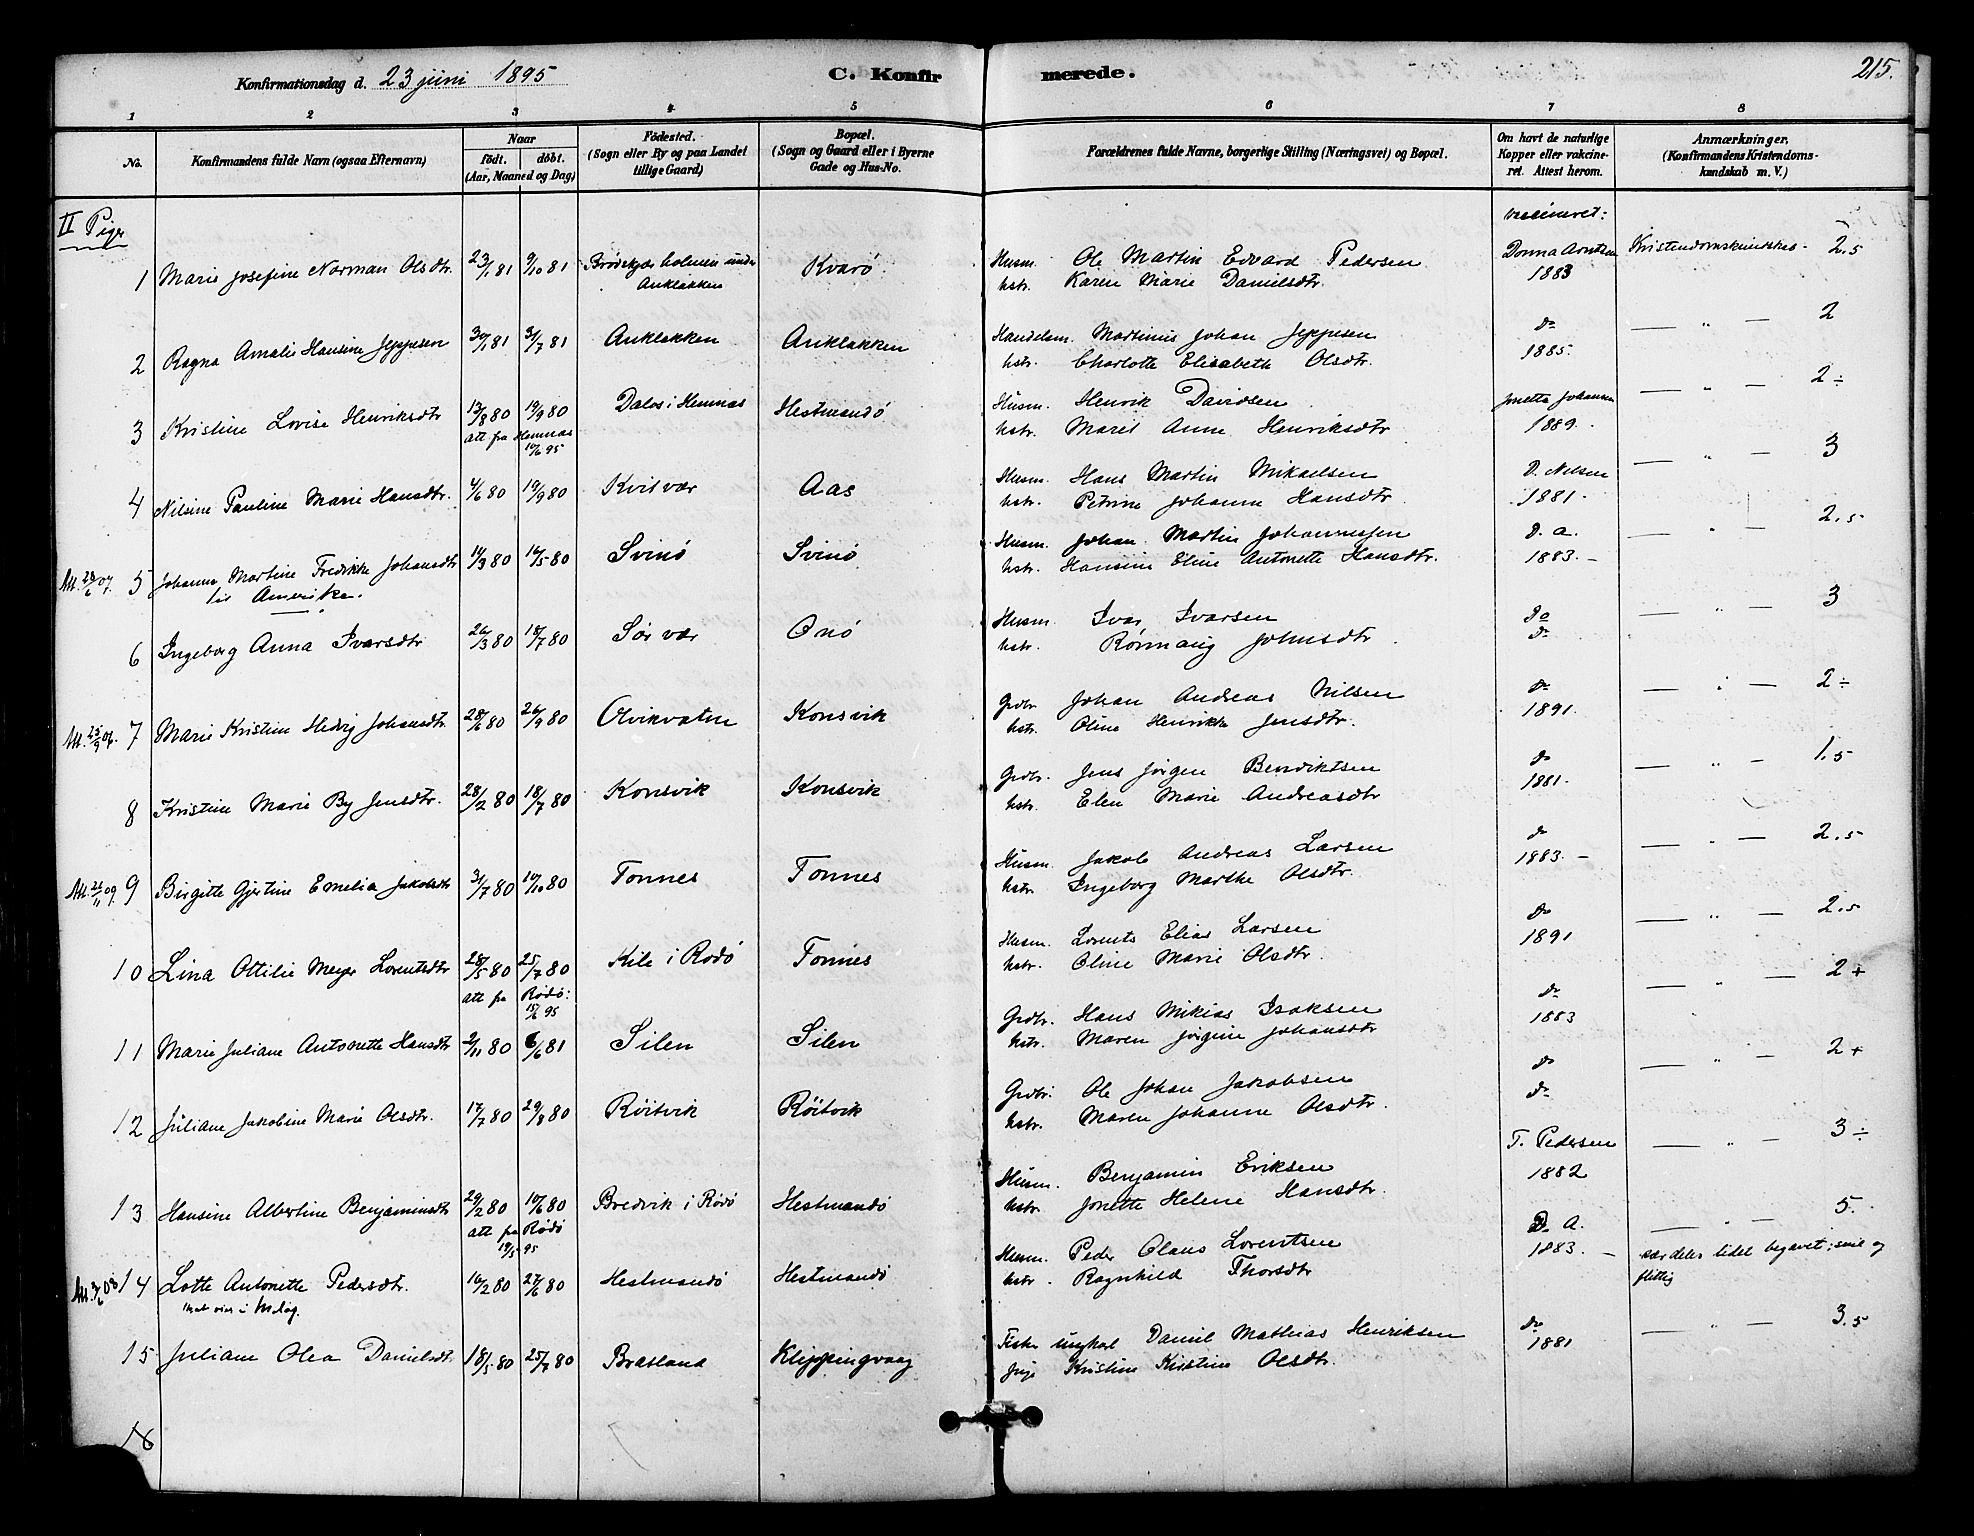 Konfirmationsdag d. 23 juni 1895
C. Konfirmerede.
215.
1 2 3 4 5 6 7 8
No.
Konfirmandens fulde Navn (ogsaa Efternavn)
Naar
födt. döbt.
(Aar, Maaned og Dag)
Födested.
(Sogn eller By og paa Landet
tillige Gaard)
Bopæl.
(Sogn og Gaard eller i Byerne
Gade og Hus-No.
Forældrenes fulde Navne, borgerlige Stilling (Næringsvei) og Bopæl.
Om havt de naturlige
Kopper eller vakcine-
ret. Attest herom.
Anmærkninger,
(Konfirmandens Kristendoms-
kundskab m. V.)
II Piger
vaccineret:
1 Marie Josefine Norman Olsdtr. 23/1 81 9/10 81 under Anklakken Kvarö Husm. Ole Martin Edvard Pedersen Donna Arntsen Kristendomskundskab - 2.5
hstr. Karen Marie Danielsdtr. 1883
2 Ragna Amalie Hansine Jeppesen 30/1 81 31/7 81 Anklakken Anklakken Handelsm. Martinus Johan Jeppesen do — " — 2
hstr. Charlotte Elisabeth Olsdtr. 1885.
3 Kristine Lovise Henriksdtr 13/8 80 19/9 80 Dalos i Hemnæs Hestmandö Husm. Henrik Davidsen Jonetta Johansen — " — 2÷
att fra Hemnæs 10/6 95 hstr. Marit Anne Henriksdtr 1889.
4 Nilsine Pauline Marie Hansdtr. 4/6 80 19/9 80 Kvitvær Aas Husm. Hans Martin Mikaelsen D. Nilsen — " — 3
hstr. Petrine Johanne Hansdtr. 1881.
Utt. 28/6 07. 5 Johanna Martine Fredrikke Johansdtr 14/3 80 16/5 80 Svinö Svinö Husm. Johan Martin Johannessen D. A. — " — 2.5
til Amerika. hstr. Hansine Eline Antonette Hansdtr. 1883.
6 Ingeborg Anna Ivarsdtr 26/3 80 18/7 80 Sörvær Onö Husm. Ivar Ivarsen Do — " — 3
hstr. Rönnaug Johnsdtr. do
Utt. 25/9 06. 7 Marie Kristine Hedvig Johansdtr 28/6 80 26/9 80 Olvikvatn Konsvik Grdbr. Johan Andreas Nilsen do — " — 2÷
hstr. Oline Henrikke Jensdtr. 1891.
8 Kristine Marie By Jensdtr. 28/2 80 18/7 80 Konsvik Konsvik Grdbr. Jens Jörgen Bendiktsen do — " — 1.5
hstr. Elen Marie Andreasdtr 1881.
Utt. 26/11 09. 9 Birgitte Gjertine Emelia Jakobsdtr 31/7 80 10/10 80 Tonnes Tonnes Husm. Jakob Andreas Larsen do — " — 2.5
hstr. Ingeborg Marthe Olsdtr. 1883.
10 Lina Ottilie Meyer Lorentsdtr 28/5 80 25/7 80 Kile i Rödö Tonnes Husm. Lorents Elias Larsen do — " — 2.5
att fra Rödö: 15/6 95 hstr. Oline Marie Olsdtr. 1891
11 Marie Juliane Antonette Hansdtr 2/11 80 6/6 81 Silen Silen Grdbr. Hans Mikias Isaksen do " — 2+
hstr. Maren Jörgine Johansdtr 1883
12 Juliane Jakobine Marie Olsdtr. 17/7 80 29/8 80 Röitvik Röitvik Grdbr. Ole Johan Jakobsen do — " — 2+
hstr. Maren Johanne Olsdtr. do
13 Hansine Albertine Benjaminsdtr 29/2 80 10/6 80 Bredvik i Rödö Hestmandö Husm. Benjamin Eriksen T. Pedersen — " — 3÷
att fra Rödö 19/5 95 hstr. Jonette Helene Hansdtr. 1882
Utt. 3/6 03 14 Lotte Antonette Pedersdtr. 16/2 80 27/6 80 Hestmandö Hestmandö Husm. Peder Olaus Lorentsen D. A. — " — 5.
i Melög. hstr. Ragnhild Thorsdtr 1883. særdeles lidet begavet; snil og flittig
15 Juliane Olea Danielsdtr 18/5 80 25/7 80 Brasland Klippingvaag Fisker ungkarl Daniel Mathias Henriksen do — " — 3.5
Pige Kristine Kirstine Olsdtr. 1881
16